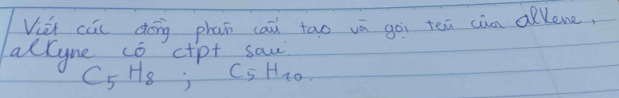 Viết các đồng phân cấu tạo và gọi tên của alkene,
alkyne có ctpt sau
C5H8 ; C5H10.